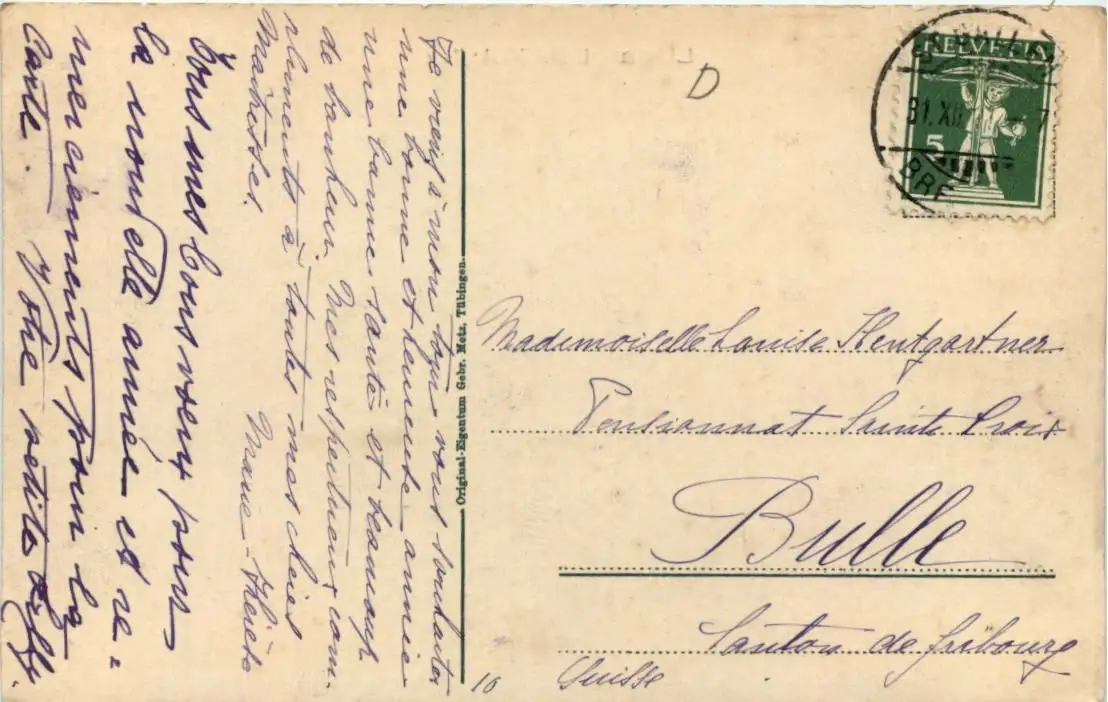 Je viens à mon tour vous souhaiter
une bonne et heureuse année
une bonne santé et beaucoup
de bonheur. Mes respectueux com-
pliments à toutes mes chères
Maîtresses.
Marie-Thérèse
Tous mes bons voeux pour
la nouvelle année et re-
merciements pour la
carte. Votre petite
Original-Eigentum Gebr. Metz, Tübingen.
D
HELVETIA
5
31.XII
7
Mademoiselle Louise Hentgartner
Pensionnat Sainte Croix
Bulle
Canton de fribourg
Suisse
10